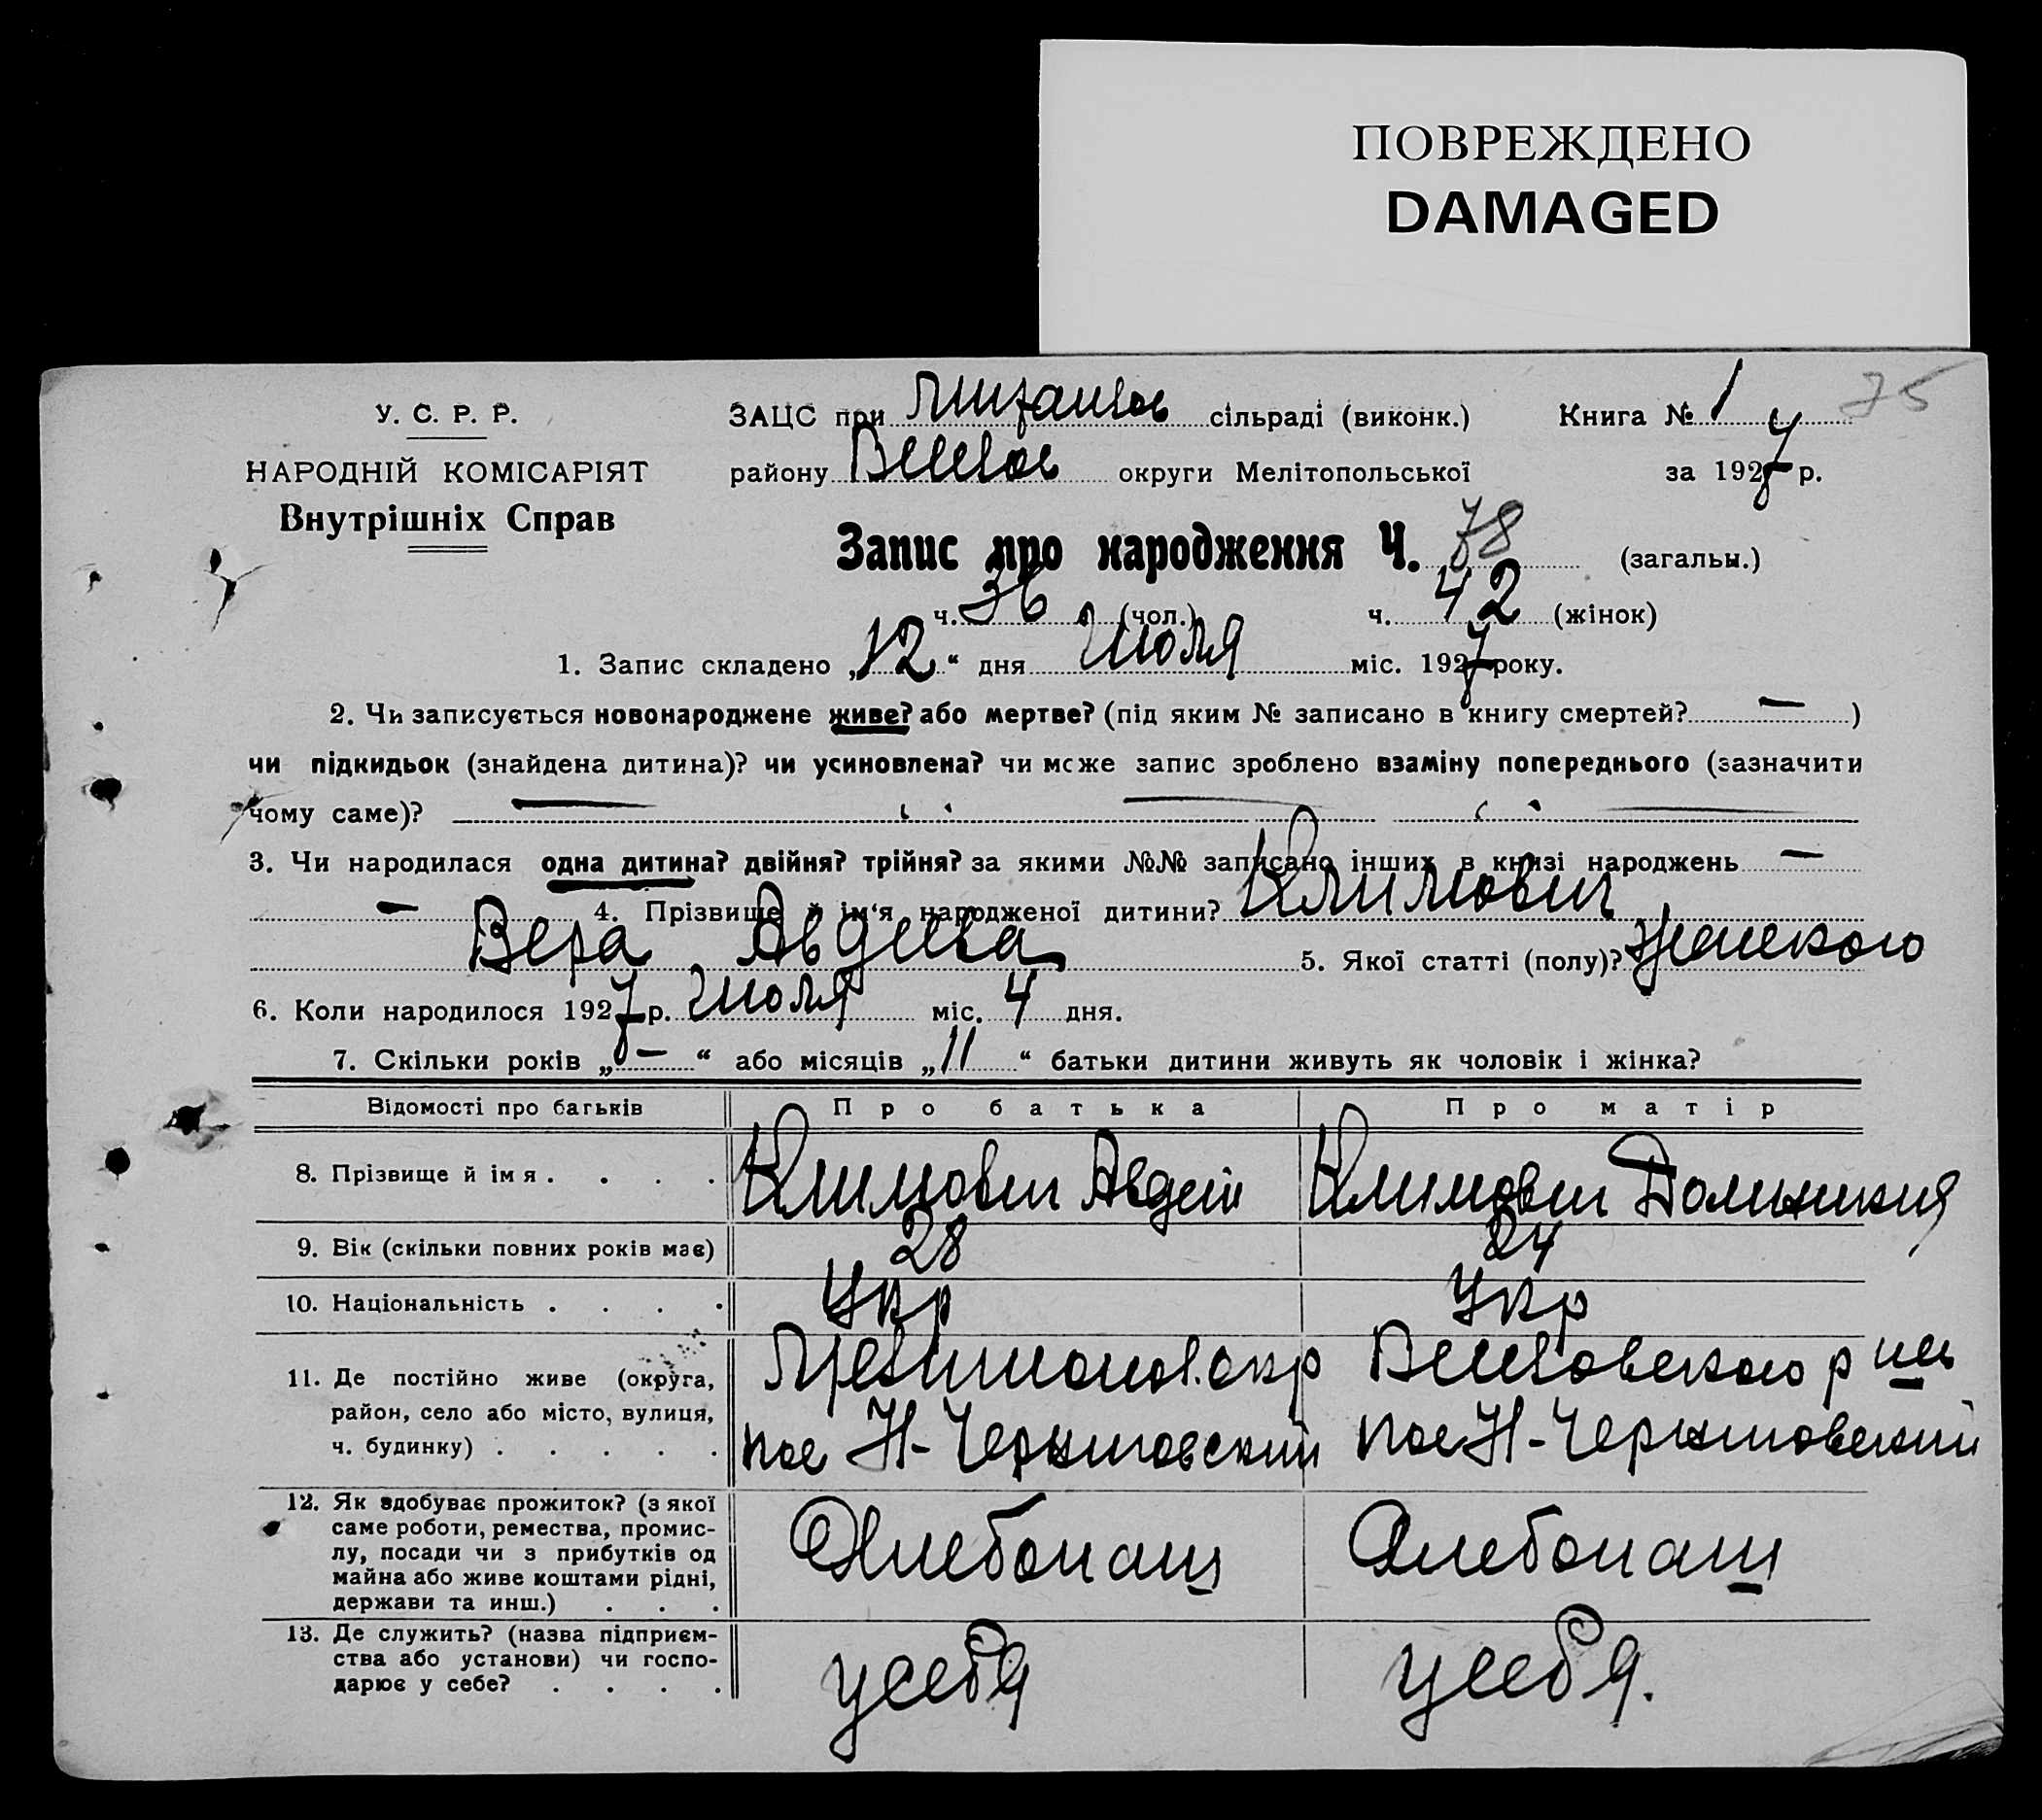 ПОВРЕЖДЕНО
DAMAGED
У. С. Р. Р.
НАРОДНІЙ КОМІСАРІЯТ
Внутрішніх Справ
ЗАЦС при сільраді (виконк.)
району округи Мелітопольської
Книга № 1 75
за 1927 р.
Запис про народження Ч. 78 (загальн.)
ч. 36 (чол.) ч. 42 (жінок)
1. Запис складено „12“ дня Июля міс. 1927 року.
2. Чи записується новонароджене живе? або мертве? (під яким № записано в книгу смертей? — )
чи підкидьок (знайдена дитина)? чи усиновлена? чи може запис зроблено взаміну попереднього (зазначити
чому саме)?
3. Чи народилася одна дитина? двійня? трійня? за якими №№ записано інших в книзі народжень —
— 4. Прізвище й ім‘я народженої дитини? Климович
Вера Авдеева 5. Якої статті (полу)? женского
6. Коли народилося 1927 р. Июля міс. 4 дня.
7. Скільки років „—“ або місяців „11“ батьки дитини живуть як чоловік і жінка?
Відомості про батьків Про батька Про матір
8. Прізвище й імя . . . . Климович Авдей Климович
9. Вік (скільки повних років має) 28 24
10. Національність . . . . Укр Укр
11. Де постійно живе (округа,
район, село або місто, вулиця,
ч. будинку) . . . . .
пос Н-Черниговский пос Н-Черниговский
12. Як здобуває прожиток? (з якої
саме роботи, ремества, промис-
лу, посади чи з прибутків од
майна або живе коштами рідні,
держави та инш.) . . .
Хлебопаш Хлебопаш
13. Де служить? (назва підприєм-
ства або установи) чи госпо-
дарює у себе? . . . .
у себя у себя.